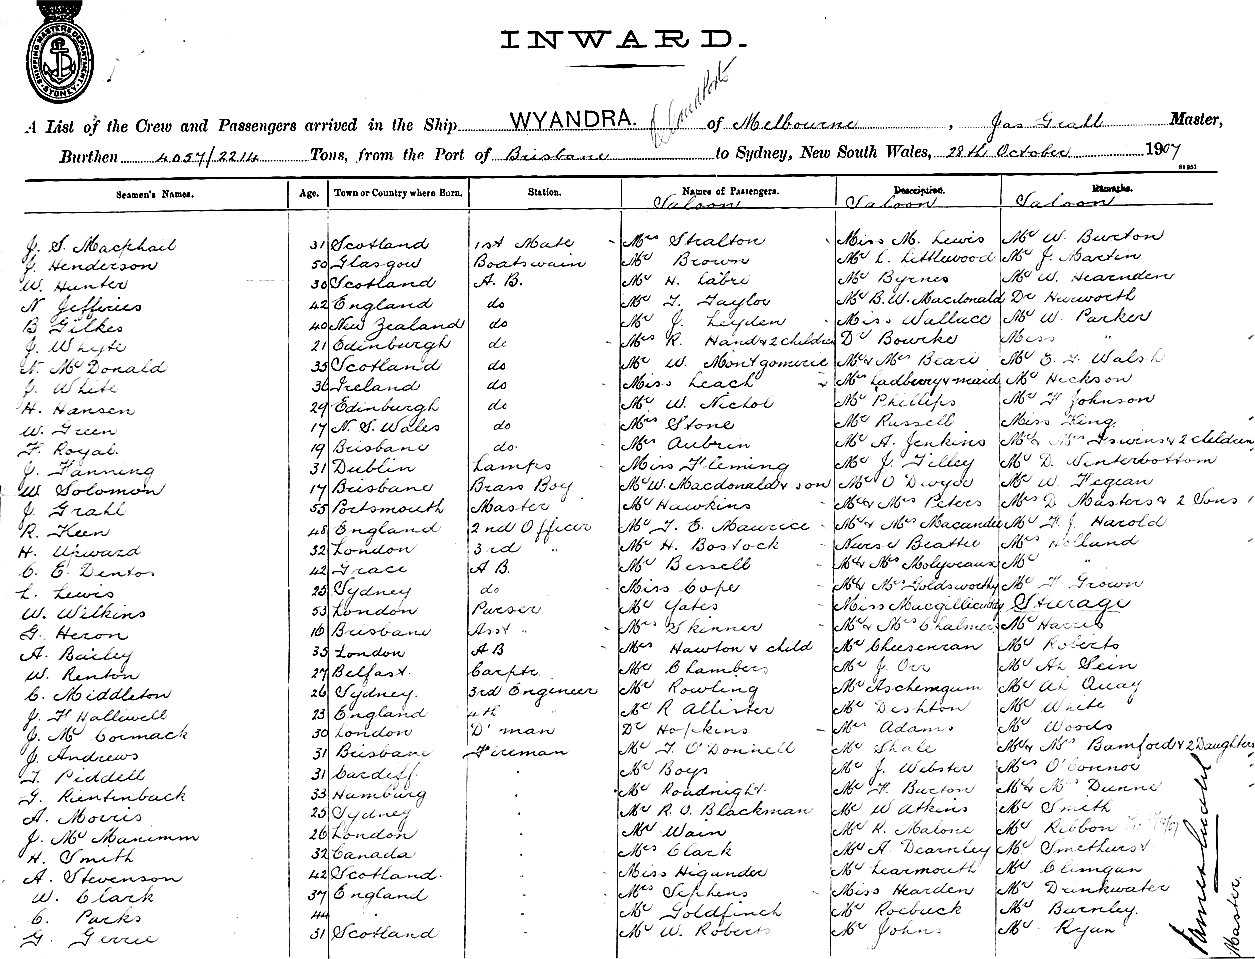 SHIPPING MASTERS DEPARTMENT SYDNEY
INWARD.
A List of the Crew and Passengers arrived in the Ship WYANDRA. of Melbourne, Jas Grahl Master,
Burthen 4057/2214 Tons, from the Port of Brisbane to Sydney, New South Wales, 28th October 1907
Seamen's Names. Age. Town or Country where Born. Station. Names of Passengers. Description. Remarks.
Saloon Saloon Saloon
J. S. Macphail 31 Scotland 1st Mate Mrs Stralton Miss M. Lewis Mr W. Burton
J. Henderson 50 Glasgow Boatswain Mr Brown Mr L. Littlewood Mr J. Martin
W. Hunter 30 Scotland A. B. Mr H. Mr Byrnes Mr W. Hearnden
N Jefferies 42 England do Mr T. Taylor Mr B. W. Macdonald Dr
B Gilkes 40 New Zealand do Mr J. Leyden Miss Wallace Mr W. Parker
J. Whyte 21 Edinburgh do Mrs R. Hand & 2 children Dr Bourke Miss "
N. McDonald 35 Scotland do Mr W. Montgomerie Mr & Mrs Beare Mr E. T. Walsh
J. White 36 Ireland do Miss Leach Mrs Ladbery & maid Mr Hickson
H. Hansen 29 Edinburgh do Mr W. Nichol Mr Phillips Mr F Johnson
W. Green 17 N. S. Wales do Mrs Stone Mr Russell Miss King
F. Royal 19 Brisbane do Mrs Aubrin Mr A. Jenkins Mr & Mrs & 2 children
J. Fanning 31 Dublin Lamps Miss Fleming Mr J. Tilley Mr D. Winterbottom
W Solomon 17 Brisbane Brass Boy Mr W. Macdonald & son Mr O'Dwyer Mr W. Fegean
J. Grahl 55 Portsmouth Master Mr Hawkins Mr & Mrs Peters Mrs D Masters & 2 Sons
R. Keen 48 England 2nd Officer Mr T. E. Maurice Mr & Mrs Macandie Mr F. J. Harold
H. Upward 32 London 3rd " Mr H. Bostock Nurse Beattie Mrs Holland
C. E. Denton 42 Grace A B. Mr Bessell Mr & Mrs Molyveaux Mr "
L. Lewis 25 Sydney do Miss Cope Mr & Mrs Goldsworthy Mr F Grown
W. Wilkins 53 London Purser Mr Yates Miss Macgillicuddy Steerage
G. Heron 16 Brisbane Asst " Mrs Skinner Mr & Mrs Chalmers Mr Harris
A. Bailey 35 London A B Mrs Hawton & child Mr Cheesenran Mr Roberts
W. Renton 27 Belfast Carptr Mr Chambers Mr J. Orr Mr Ah Sein
C. Middleton 26 Sydney. 3rd Engineer Mr Rowling Mr Aschemgum Mr Ah Quay
J. F Halliwell 23 England 4th " Mr R Allister Mr Dishton Mr White
J. McCormack 30 London D' man Dr Hopkins Mrs Adams Mr Woods
J. Andrews 31 Brisbane Fireman Mr T. O'Donnell Mr Shale Mr & Mrs Bamford & 2 Daughters
T. Piddell 31 Cardiff Mr Boys Mr J. Webster Mrs O'Connor
G. Rientenback 33 Hamburg Mr Roadnight Mr F. Burton Mr & Mrs Dunne
A. Morris 25 Sydney Mr R. O. Blackman Mr W Atkins Mr Smith
J. McManimm 26 London Mr Wain Mr R. Malone Mr Ribbon
H. Smith 32 Canada Mrs Clark Mr A. Dearnley Mr Smethurst
A. Stevenson 42 Scotland. Miss Higander Mr Learmouth Mr Climgan
W. Clark 37 England Mrs Stephens Miss Hearden Mr Drinkwater
C. Parks 44 Mr Goldfinch Mr Roebuck Mr Burnley.
G. Gerrie 31 Scotland Mr W. Roberts Mr Johns Mr Ryan
Master.